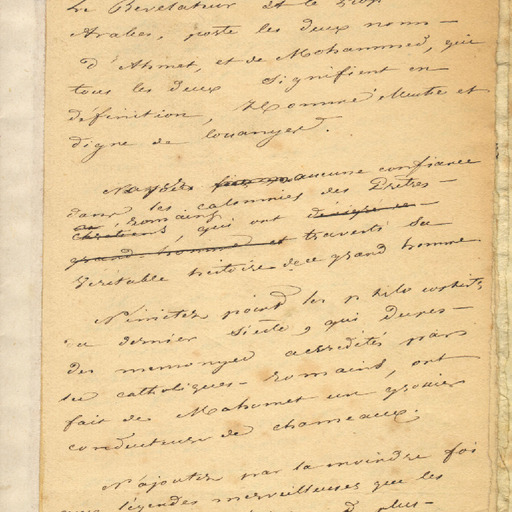 Le Révélateur et le
Arabes, porte les deux noms
d'Ahmet, et de Mohammed, qui
tous les deux signifient en
définition, Homme et
digne de louanges.
N'ayez aucune confiance
dans les calomnies des Prêtres
romains, qui ont
grand homme et travesti sa
véritable histoire de ce grand homme
N'imitez point les philosophes
du dernier Siècle, qui dupes
des mensonges accrédités par
les catholiques-romains, ont
fait de Mahomet un grossier
conducteur de chameaux.
N'ajoutez pas la moindre foi
aux légendes merveilleuses que les
plus-